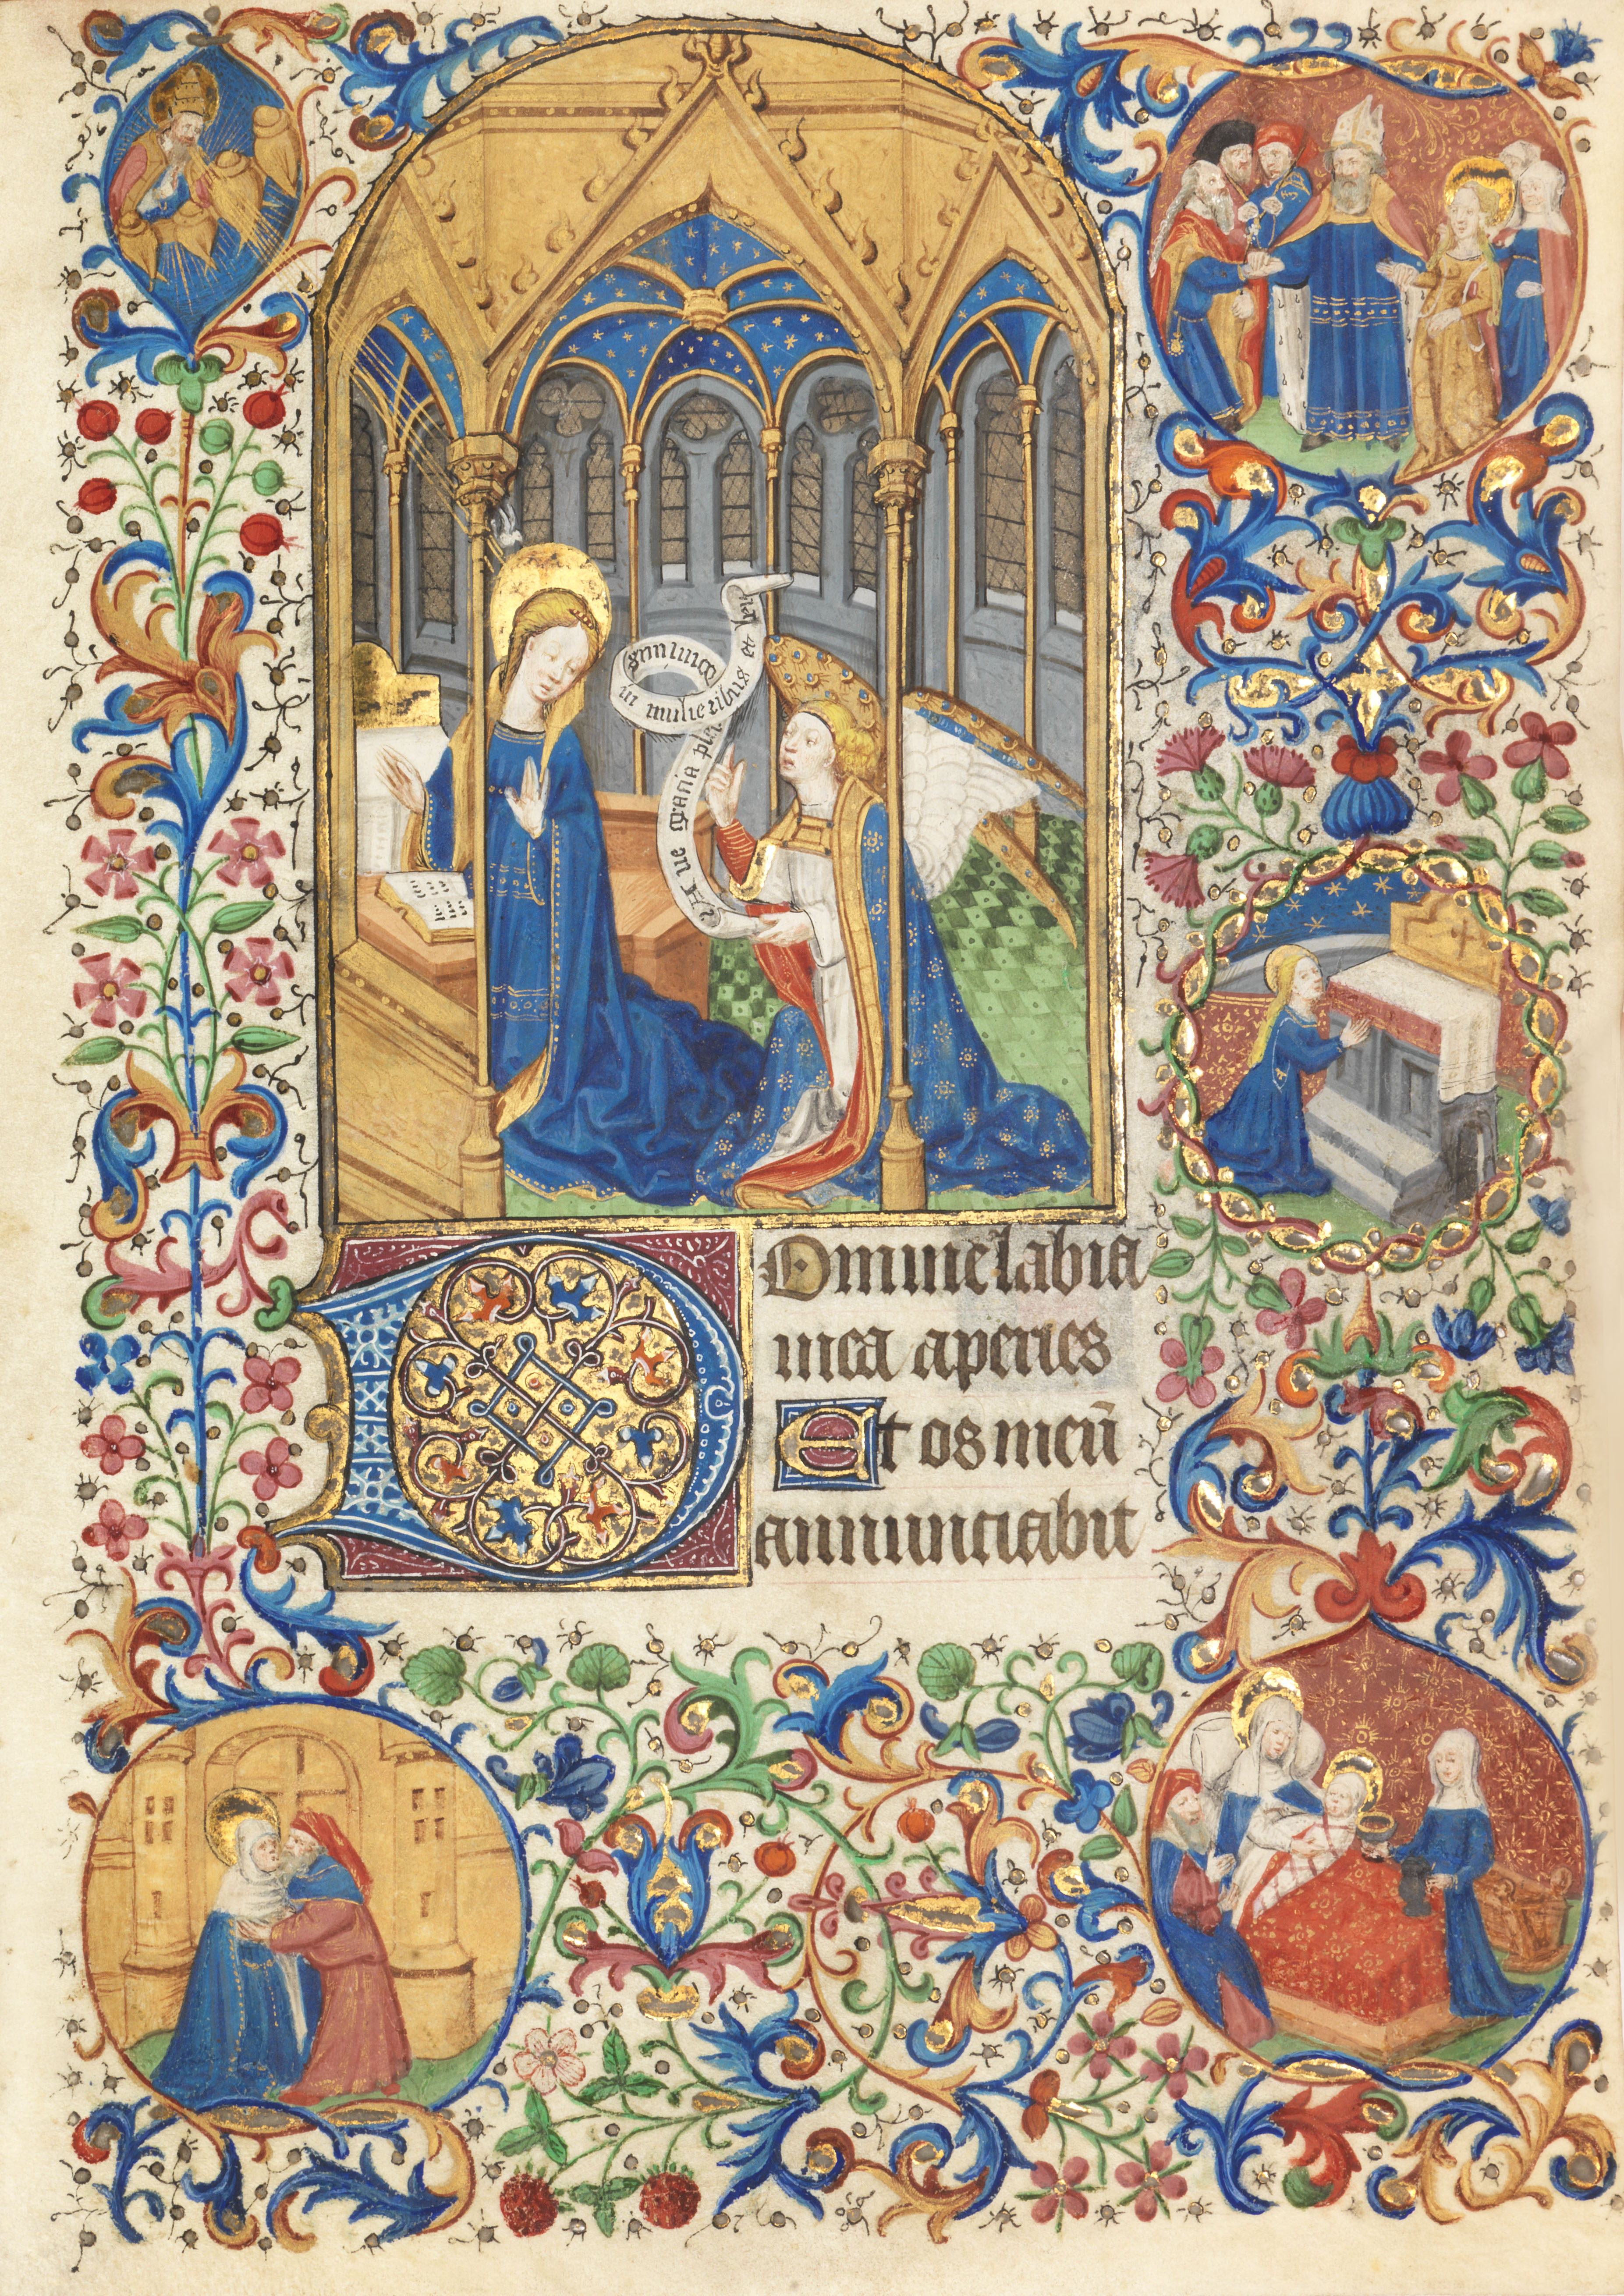 Aue gracia ple
dominus
in mulieribus et ben
Domine labia
mea aperies
Et os meū
annunciabit